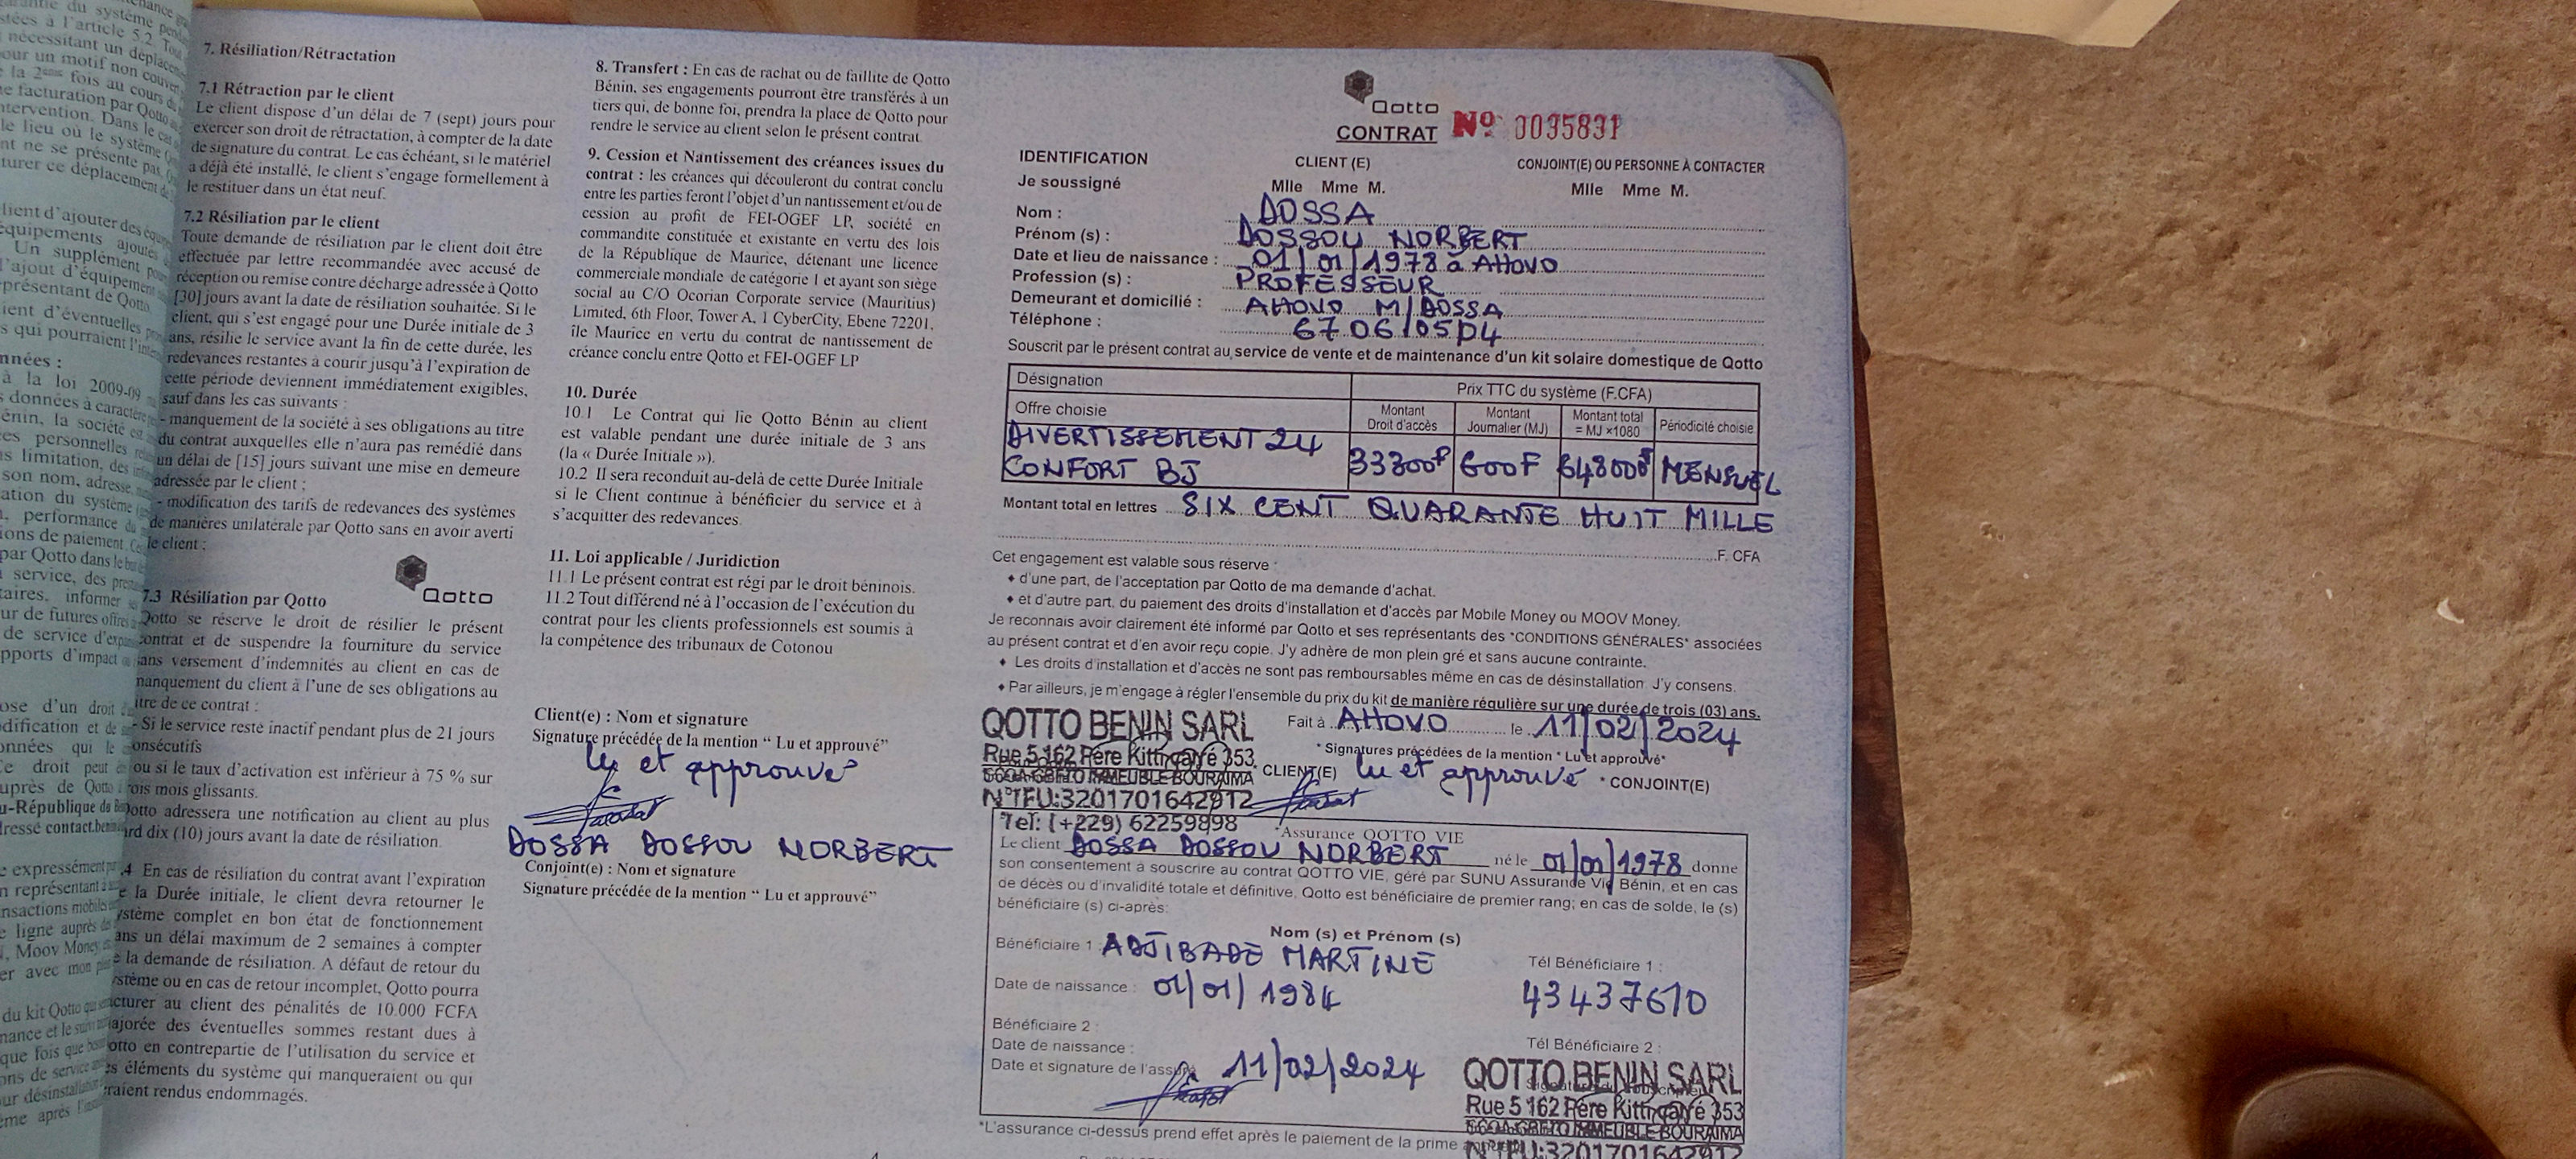 7. Résiliation/Rétractation
7.1 Rétraction par le client
Le client dispose d'un délai de 7 (sept) jours pour
exercer son droit de rétractation, à compter de la date
de signature du contrat. Le cas échéant, si le matériel
a déjà été installé, le client s'engage formellement à
le restituer dans un état neuf.
7.2 Résiliation par le client
Toute demande de résiliation par le client doit être
effectuée par lettre recommandée avec accusé de
réception ou remise contre décharge adressée à Qotto
[30] jours avant la date de résiliation souhaitée. Si le
client, qui s'est engagé pour une Durée initiale de 3
ans, résilie le service avant la fin de cette durée, les
redevances restantes à courir jusqu'à l'expiration de
cette période deviennent immédiatement exigibles,
sauf dans les cas suivants :
- manquement de la société à ses obligations au titre
du contrat auxquelles elle n'aura pas remédié dans
un délai de [15] jours suivant une mise en demeure
adressée par le client ;
- modification des tarifs de redevances des systèmes
de manières unilatérale par Qotto sans en avoir averti
le client ;
Qotto
7.3 Résiliation par Qotto
Qotto se réserve le droit de résilier le présent
contrat et de suspendre la fourniture du service
sans versement d'indemnités au client en cas de
manquement du client à l'une de ses obligations au
titre de ce contrat :
- Si le service reste inactif pendant plus de 21 jours
consécutifs
ou si le taux d'activation est inférieur à 75 % sur
trois mois glissants.
Qotto adressera une notification au client au plus
tard dix (10) jours avant la date de résiliation.
.4 En cas de résiliation du contrat avant l'expiration
de la Durée initiale, le client devra retourner le
système complet en bon état de fonctionnement
dans un délai maximum de 2 semaines à compter
de la demande de résiliation. A défaut de retour du
système ou en cas de retour incomplet, Qotto pourra
facturer au client des pénalités de 10.000 FCFA
majorée des éventuelles sommes restant dues à
Qotto en contrepartie de l'utilisation du service et
des éléments du système qui manqueraient ou qui
seraient rendus endommagés.
8. Transfert : En cas de rachat ou de faillite de Qotto
Bénin, ses engagements pourront être transférés à un
tiers qui, de bonne foi, prendra la place de Qotto pour
rendre le service au client selon le présent contrat.
9. Cession et Nantissement des créances issues du
contrat : les créances qui découleront du contrat conclu
entre les parties feront l'objet d'un nantissement et/ou de
cession au profit de FEI-OGEF LP, société en
commandite constituée et existante en vertu des lois
de la République de Maurice, détenant une licence
commerciale mondiale de catégorie 1 et ayant son siège
social au C/O Ocorian Corporate service (Mauritius)
Limited, 6th Floor, Tower A, 1 CyberCity, Ebene 72201,
île Maurice en vertu du contrat de nantissement de
créance conclu entre Qotto et FEI-OGEF LP
10. Durée
10.1 Le Contrat qui lie Qotto Bénin au client
est valable pendant une durée initiale de 3 ans
(la « Durée Initiale »).
10.2 Il sera reconduit au-delà de cette Durée Initiale
si le Client continue à bénéficier du service et à
s'acquitter des redevances.
11. Loi applicable / Juridiction
11.1 Le présent contrat est régi par le droit béninois.
11.2 Tout différend né à l'occasion de l'exécution du
contrat pour les clients professionnels est soumis à
la compétence des tribunaux de Cotonou
Client(e) : Nom et signature
Signature précédée de la mention “ Lu et approuvé”
lu et approuvé
DOSSA DOSSOU NORBERT
Conjoint(e) : Nom et signature
Signature précédée de la mention “ Lu et approuvé”
Qotto
CONTRAT Nº 0035831
IDENTIFICATION CLIENT (E) CONJOINT(E) OU PERSONNE À CONTACTER
Je soussigné Mlle Mme M. Mlle Mme M.
Nom : DOSSA
Prénom (s) : DOSSOU NORBERT
Date et lieu de naissance : 01/01/1978 à AHOVO
Profession (s) : PROFESSEUR
Demeurant et domicilié : AHOVO M/DOSSA
Téléphone : 67 06 05 04
Souscrit par le présent contrat au service de vente et de maintenance d'un kit solaire domestique de Qotto
Désignation Prix TTC du système (F.CFA)
Offre choisie Montant Droit d'accès Montant Journalier (MJ) Montant total = MJ ×1080 Périodicité choisie
DIVERTISSEMENT 24
CONFORT BJ 33300F 600F 648000F MENSUEL
Montant total en lettres SIX CENT QUARANTE HUIT MILLE
F. CFA
Cet engagement est valable sous réserve :
♦ d'une part, de l'acceptation par Qotto de ma demande d'achat.
♦ et d'autre part, du paiement des droits d'installation et d'accès par Mobile Money ou MOOV Money.
Je reconnais avoir clairement été informé par Qotto et ses représentants des "CONDITIONS GÉNÉRALES" associées
au présent contrat et d'en avoir reçu copie. J'y adhère de mon plein gré et sans aucune contrainte.
♦ Les droits d'installation et d'accès ne sont pas remboursables même en cas de désinstallation. J'y consens.
♦ Par ailleurs, je m'engage à régler l'ensemble du prix du kit de manière régulière sur une durée de trois (03) ans.
QOTTO BENIN SARL
Rue 5 162 Père Kitti carré 353
SCOA-GBETO IMMEUBLE BOURAIMA
N°IFU:3201701642912
Tel: (+229) 62259898
Fait à AHOVO le 11/02/2024
* Signatures précédées de la mention " Lu et approuvé"
CLIENT(E) lu et approuvé * CONJOINT(E)
*Assurance QOTTO VIE
Le client DOSSA DOSSOU NORBERT né le 01/01/1978 donne
son consentement à souscrire au contrat QOTTO VIE, géré par SUNU Assurande Vie Bénin, et en cas
de décès ou d'invalidité totale et définitive, Qotto est bénéficiaire de premier rang; en cas de solde, le (s)
bénéficiaire (s) ci-après:
Nom (s) et Prénom (s)
Bénéficiaire 1 : ADJIBADE MARTINE Tél Bénéficiaire 1 :
Date de naissance : 01/01/1984 43437610
Bénéficiaire 2 :
Date de naissance : Tél Bénéficiaire 2 :
Date et signature de l'assuré 11/02/2024
QOTTO BENIN SARL
Rue 5 162 Père Kitti carré 353
SCOA-GBETO IMMEUBLE BOURAIMA
N°IFU:3201701642912
*L'assurance ci-dessus prend effet après le paiement de la prime